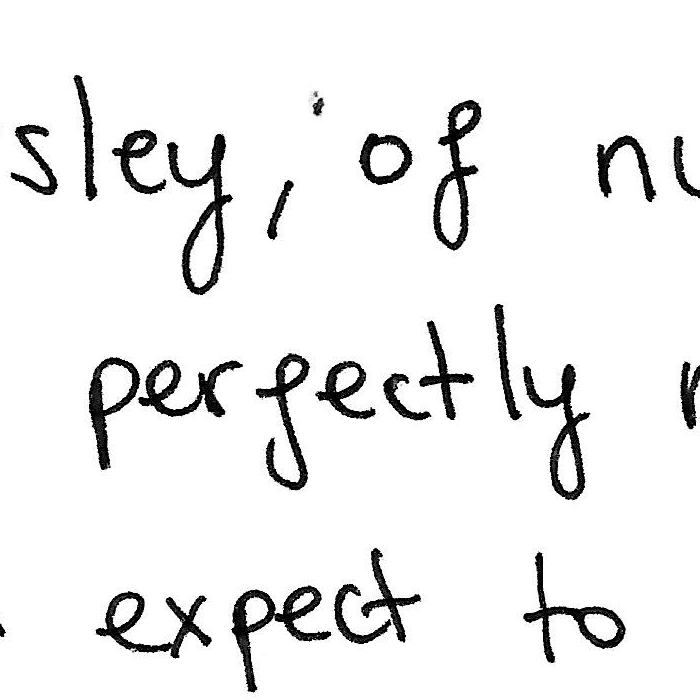 sley, of nu
perfectly
expect to